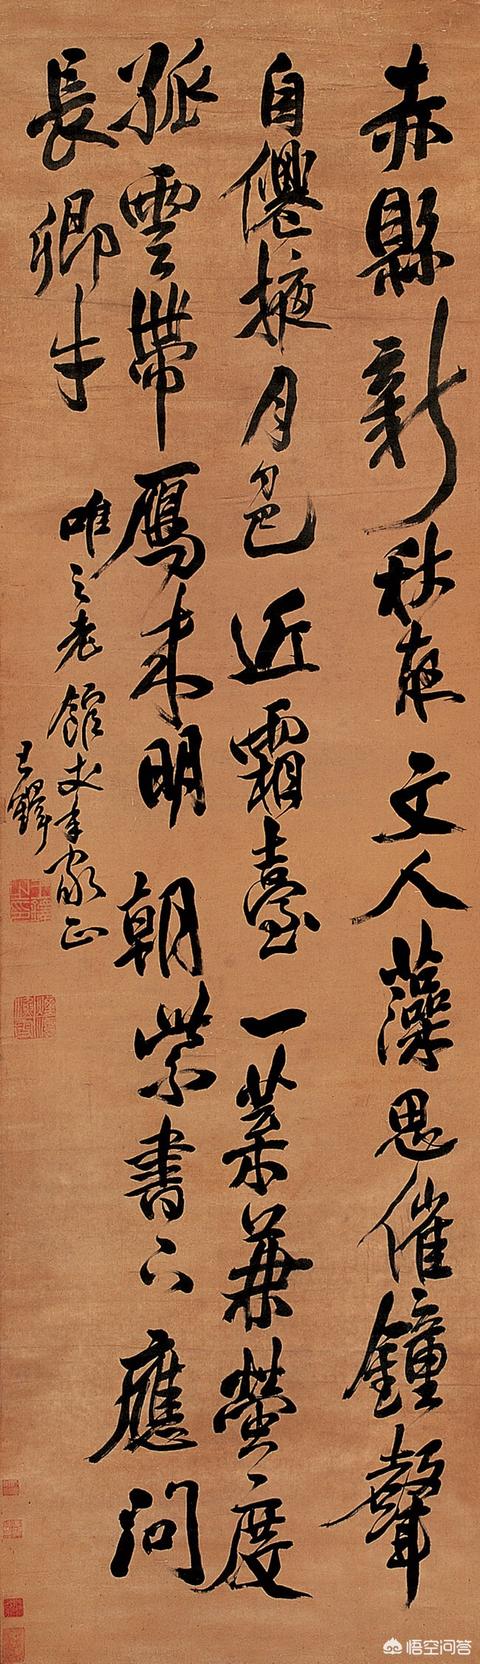 赤縣新秋夜文人藻思催鐘聲
自僊掖月色近霜臺一葉兼螢度
孤雲帶鴈来明朝紫書下應問
長卿才
唯之老館丈年家正
王鐸
悟空问答